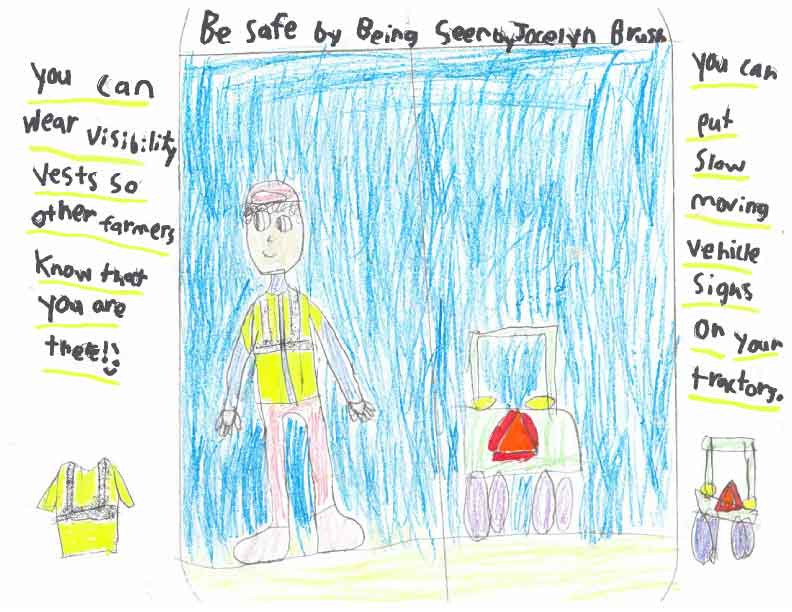 Be Safe by Being Seen by Jocelyn Brush
you can
wear visibility
vests so
other farmers
Know that
you are
there!!
you can
put
Slow
moving
vehicle
Signs
on your
tractors.